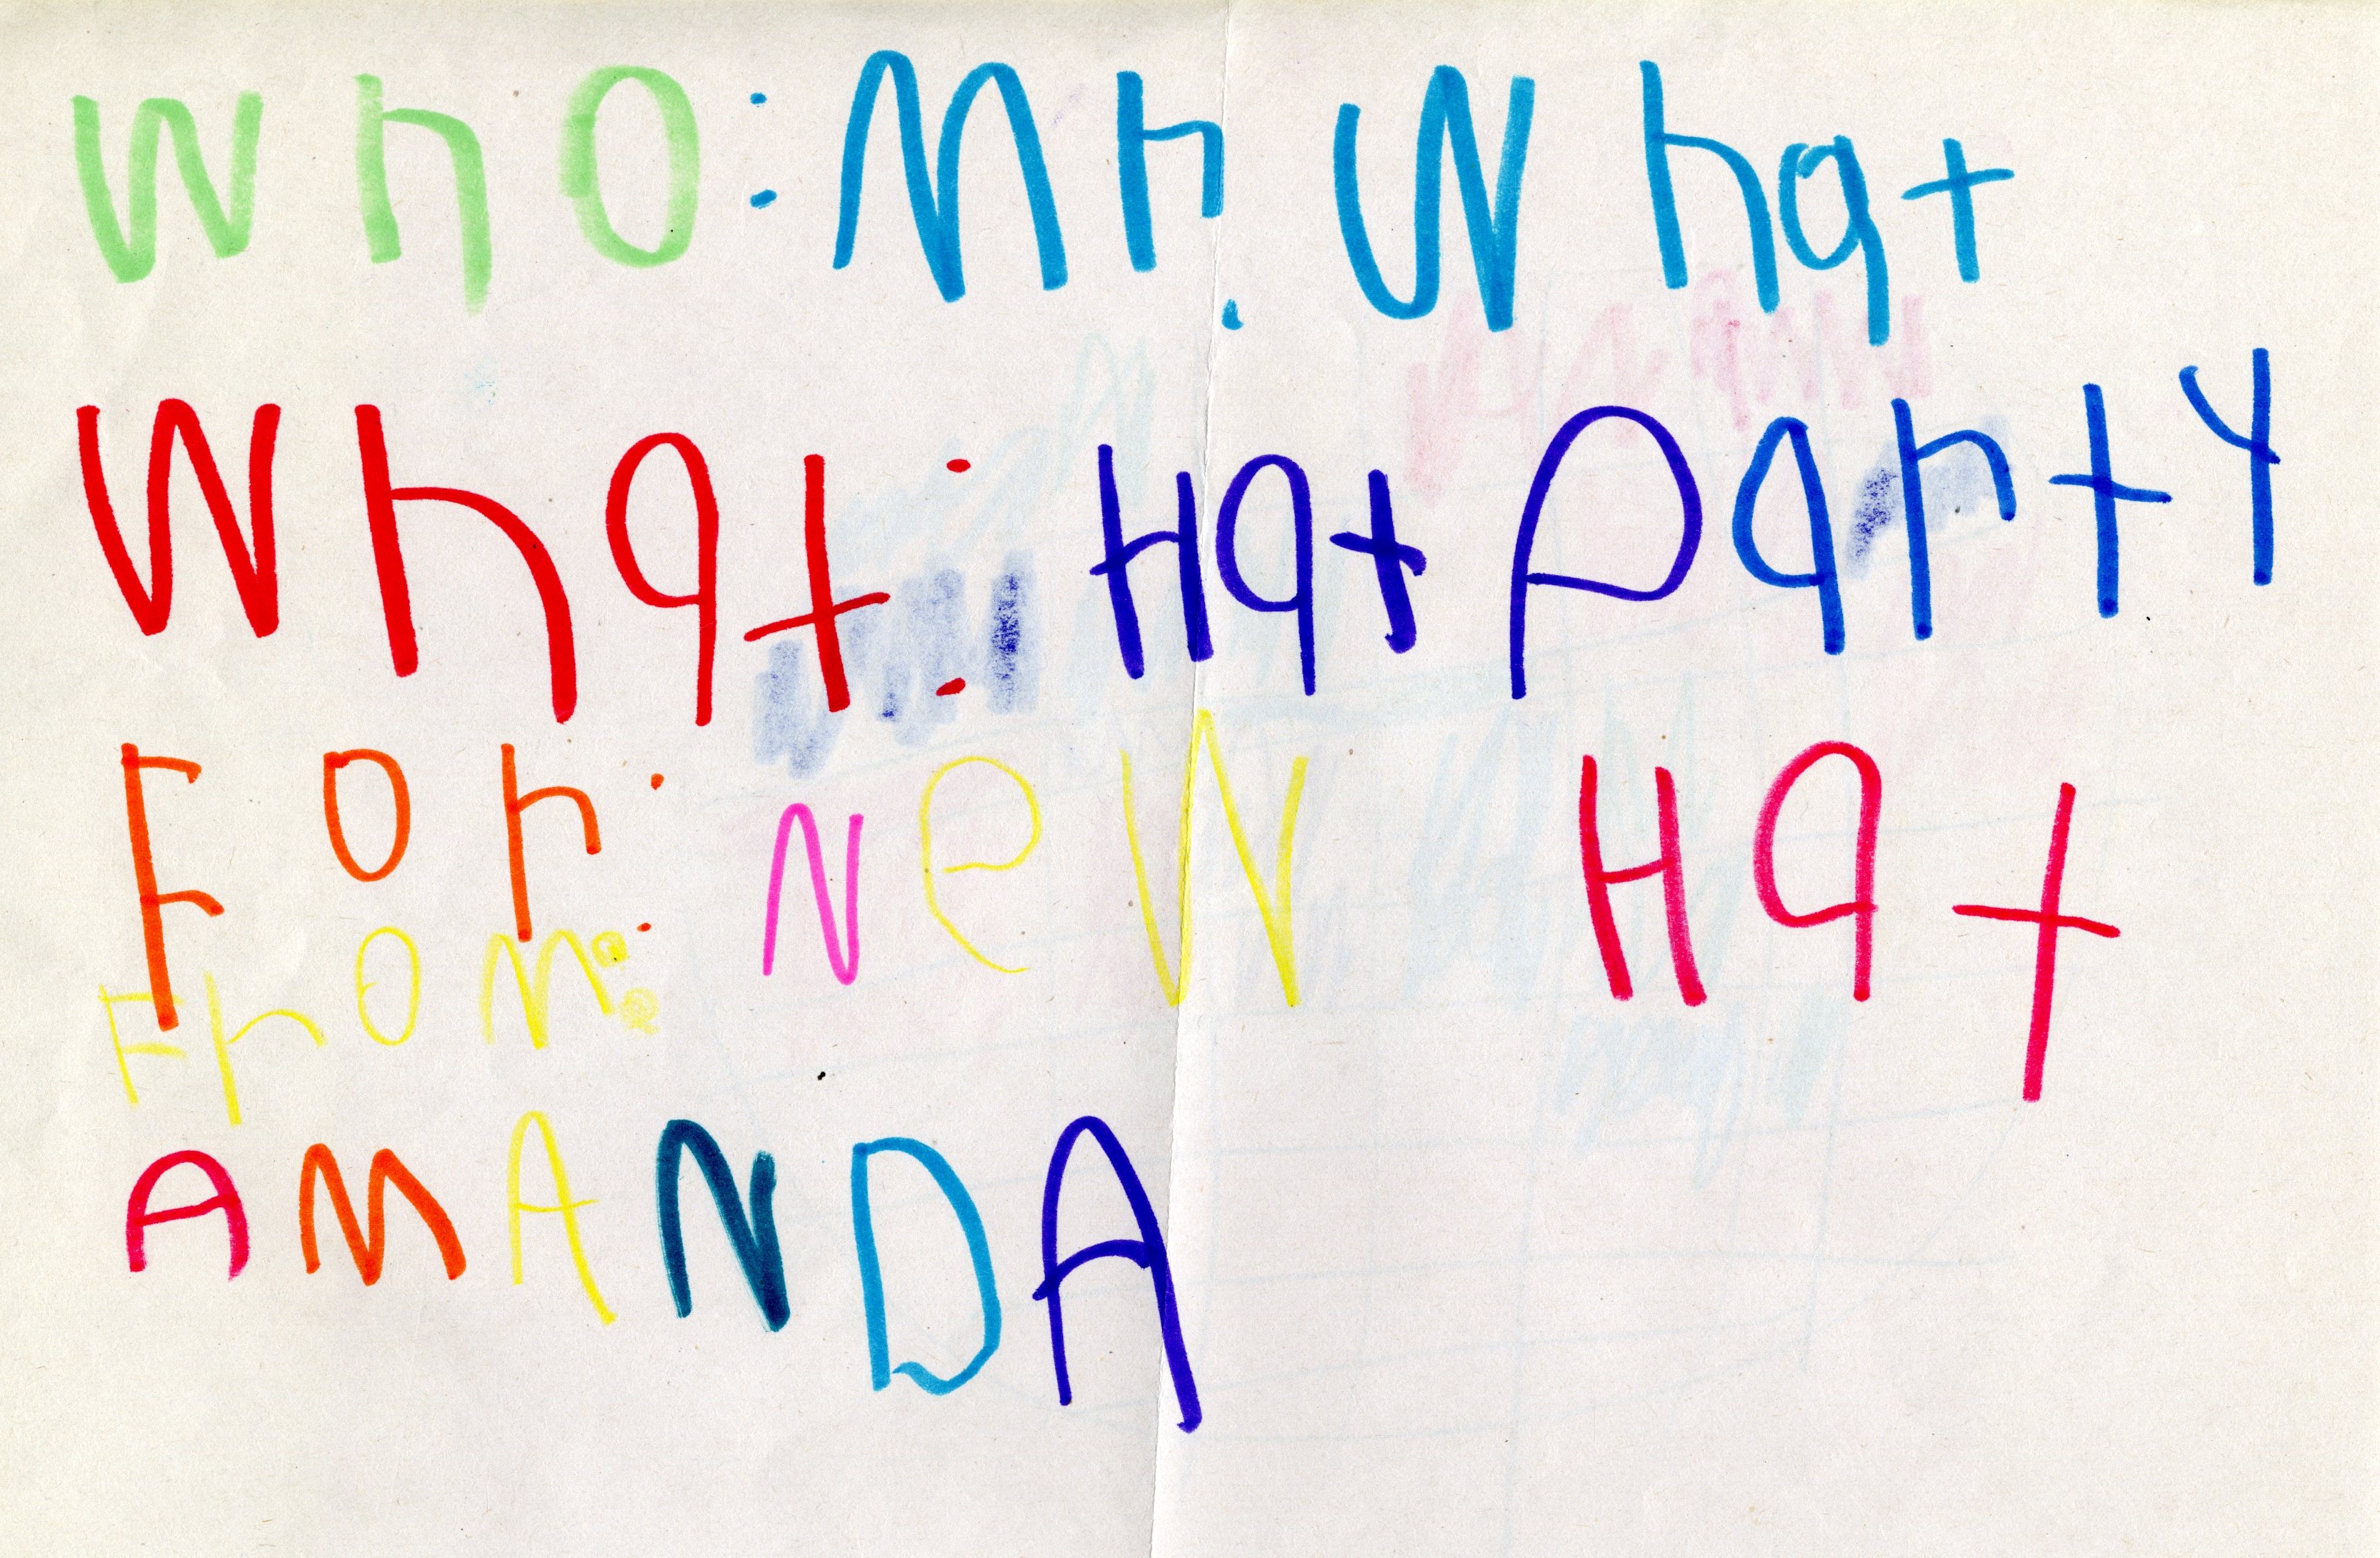 Who: Mr. What
What: Hat Party
For: New Hat
From:
AMANDA